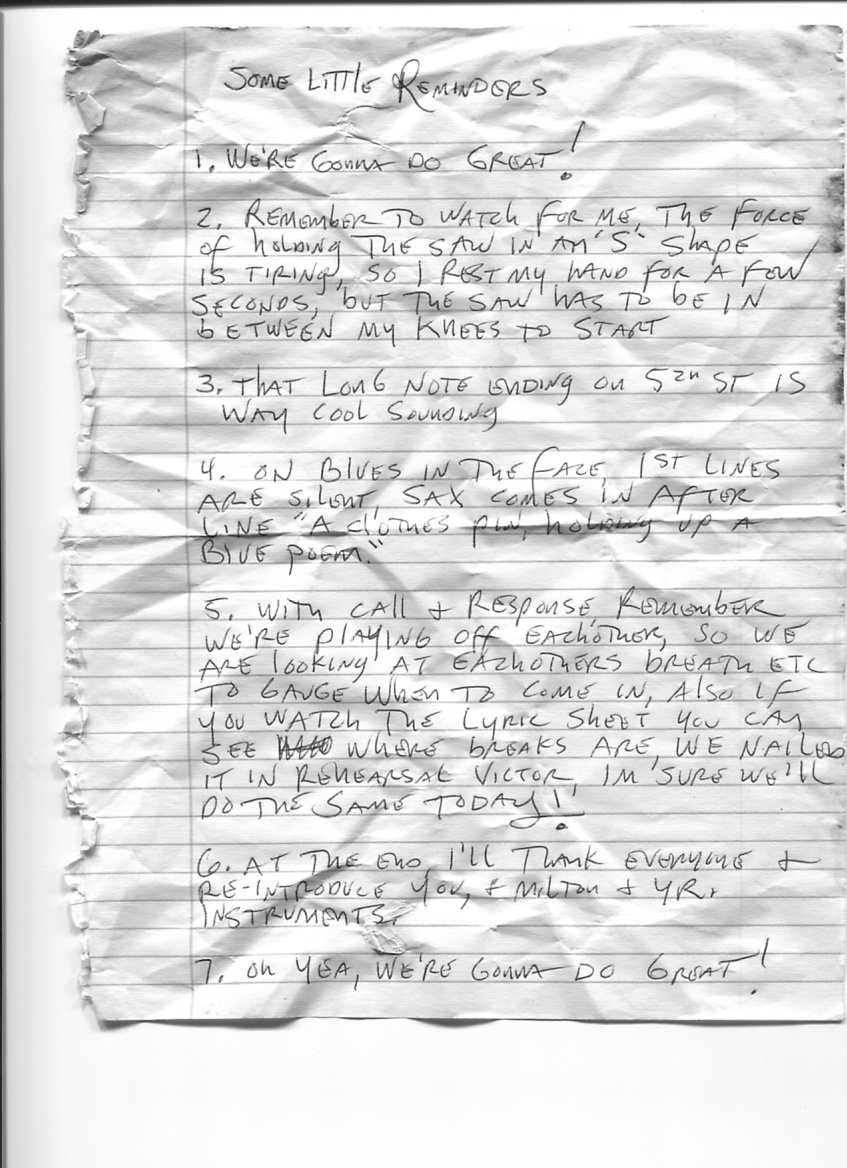 SOME LITTLE REMINDERS
1. WE'RE GONNA DO GREAT!
2. REMEMBER TO WATCH FOR ME, THE FORCE
OF HOLDING THE SAW IN AN "S" SHAPE
IS TIRING, SO I REST MY HAND FOR A FEW
SECONDS, BUT THE SAW HAS TO BE IN
BETWEEN MY KNEES TO START
3. THAT LONG NOTE ENDING ON 52ND ST IS
WAY COOL SOUNDING
4. ON BLUES IN THE FACE, 1ST LINES
ARE SILENT, SAX COMES IN AFTER
LINE "A CLOTHES PIN, HOLDING UP A
BLUE POEM."
5. WITH CALL + RESPONSE, REMEMBER
WE'RE PLAYING OFF EACHOTHER, SO WE
ARE LOOKING AT EACHOTHERS BREATH ETC
TO GAUGE WHEN TO COME IN, ALSO IF
YOU WATCH THE LYRIC SHEET YOU CAN
SEE WHERE BREAKS ARE, WE NAILED
IT IN REHEARSAL VICTOR, IM SURE WE'LL
DO THE SAME TODAY!!
6. AT THE END, I'LL THANK EVERYONE +
RE-INTRODUCE YOU, + MILTON + YR.
INSTRUMENTS.
7. OH YEA, WE'RE GONNA DO GREAT!